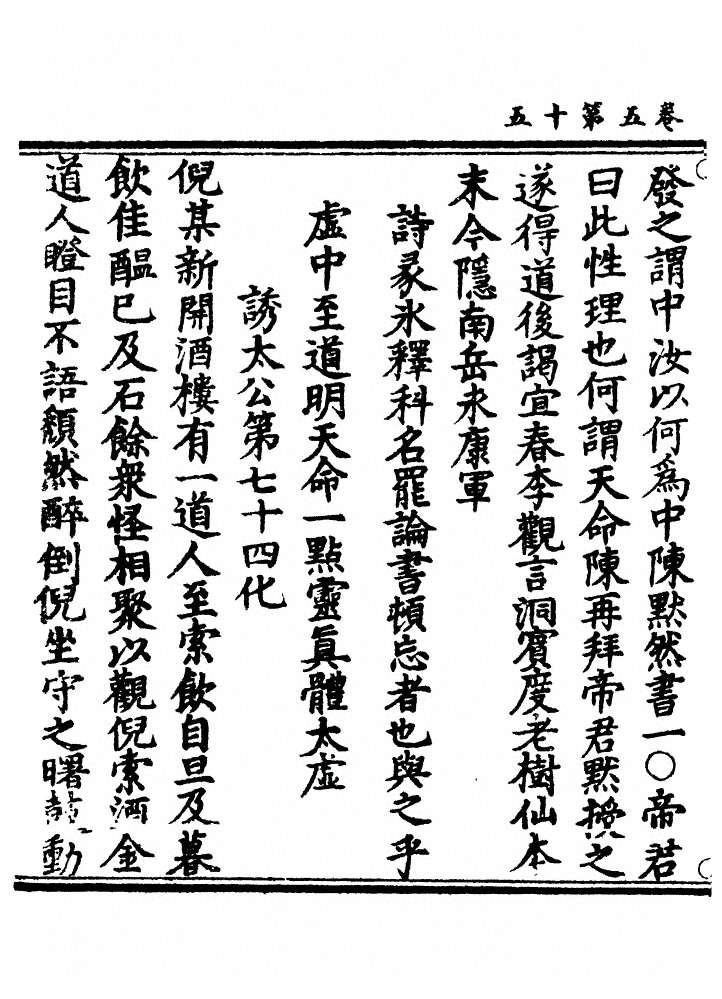 卷五第十五
發之謂中汝以何爲中陳默然書一〇帝君
曰此性理也何謂天命陳再拜帝君默授之
遂得道後謁宜春李觀言洞賓度老樹仙本
末今隱南岳永康軍
詩豖氷釋科名罷論書頓忘者也與之乎
虛中至道明天命一點靈眞體太虛
誘太公第七十四化
倪某新開酒樓有一道人至索飲自旦及暮
飲佳醞已及石餘衆怪相聚以觀倪索酒金
道人瞪目不語頹然醉倒倪坐守之曙鼓動